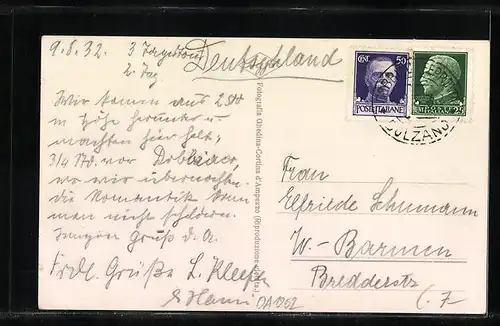 9.8.32. 3 Tagestour
2. Tag
Deutschland
Wir kamen aus 2500
m Höhe herunter u.
machten hier halt,
3/4 Std. vor Dobbiaco,
wo wir übernachten.
die Romantik kann
man nicht schildern.
Gruß d. A.
Frdl. Grüße L. Kleefer
& Hanni OA062
Fotografia Ghedina-Cortina d'Ampezzo (Riproduzione vietata.)
CENT. 50
POSTE ITALIANE
25
BOLZANO
Frau
Elfriede Schumann
W.-Barmen
Bredderstr.